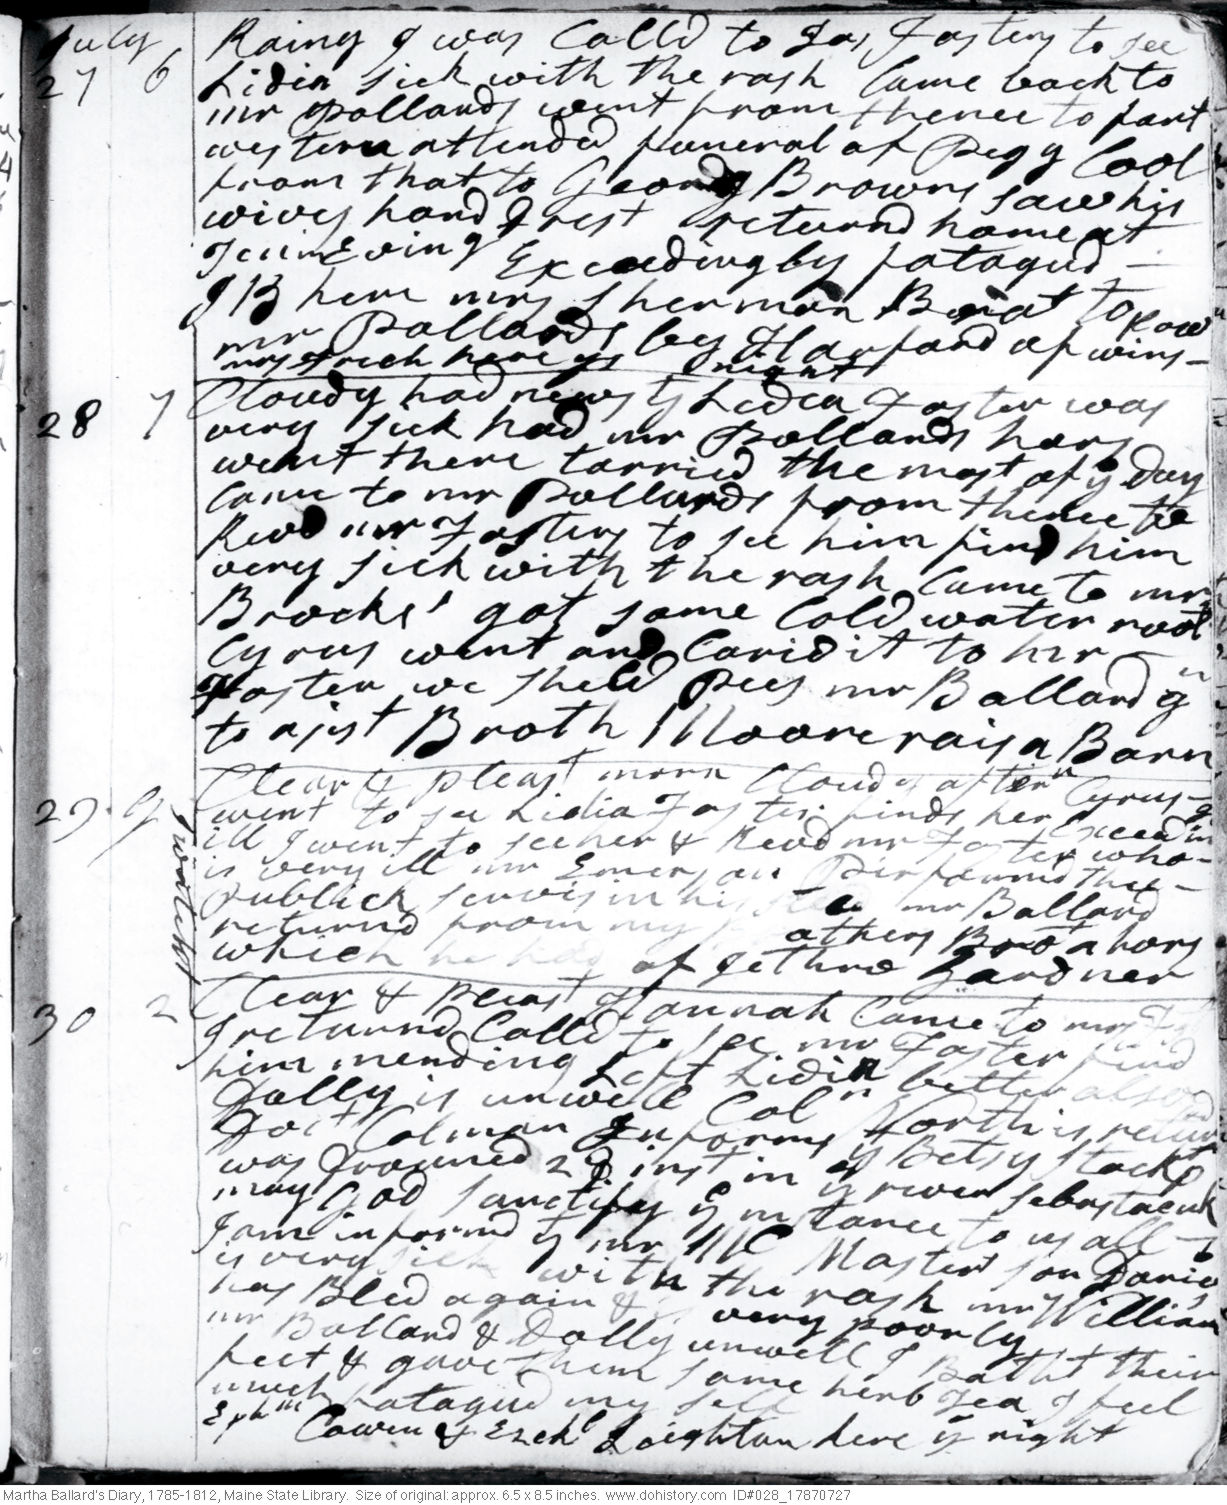 July
27 6 Rainy I was Calld to Jas Fosters to see
Lidia sick with the rash Came back to
mr Pollards went from thence to fort
western attended funeral of Pegy Cool
from that to Georg Browns saw his
wives hand I rest returnd home at
Exceedingly fatagud
J B here mrs Sherman Boat to
mr Pollards by Harford of wins-
mrs here ys night
28 7 Cloudy had news yt Lidia Foster was
very sick had mr Pollards hors
went there tarried the most of ye Day
Came to mr Pollards from thence to
Revd mr Fosters to see him find him
very sick with the rash Came to mr
Brooks' got some Cold water root
Cyrus went and Carid it to mr
Foster we sheld Pees mr Ballard gn
to asist Broth Moore rais a Barn
29 g Clear & pleast morn Cloudy aftern Cyrus
went to see Lidia Foster finds her Exceeding
ill I went to see her & Revd mr Foster who
is very ill mr Emerson Performd the
Publick servis in his Sted mr Ballard
returnd from my Brot a hors
which he had of Jethro Gardner
I was to see
30 2 Clear & pleast Hannah Came to mrs
I returnd Calld to see mr Foster find
him mending Left Lidia better also
Dolly is unwell Coln North is returnd
Doct Colman Informs yt Betsy Stackp
was Drowned 22d inst in ye river sebastacuk
may God sanctify ye instance to us all
I am informd yt mr Mc Masters son
is very sick with the rash mr William
has Bled again & is very poorly
mr Ballard & Dolly unwell I Batht their
feet & gave them some herb Tea I feel
much fatagud my self
Ephm Cowen & Ezekl Loighton here ys night
Martha Ballard's Diary, 1785-1812, Maine State Library. Size of original: approx. 6.5 x 8.5 inches. www.dohistory.com ID#028_17870727